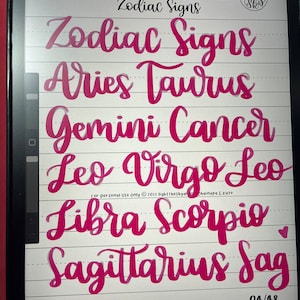 Zodiac Signs
Zodiac Signs
Aries Taurus
Gemini Cancer
Leo Virgo Leo
for personal use only ©
Libra Scorpio
Sagittarius Sag